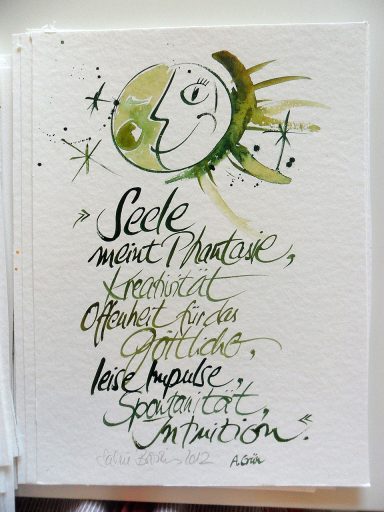 »Seele
meint Phantasie,
Kreativität
Offenheit für das
Göttliche,
leise Impulse,
Spontanität,
Intuition.«
2012 A. Grün